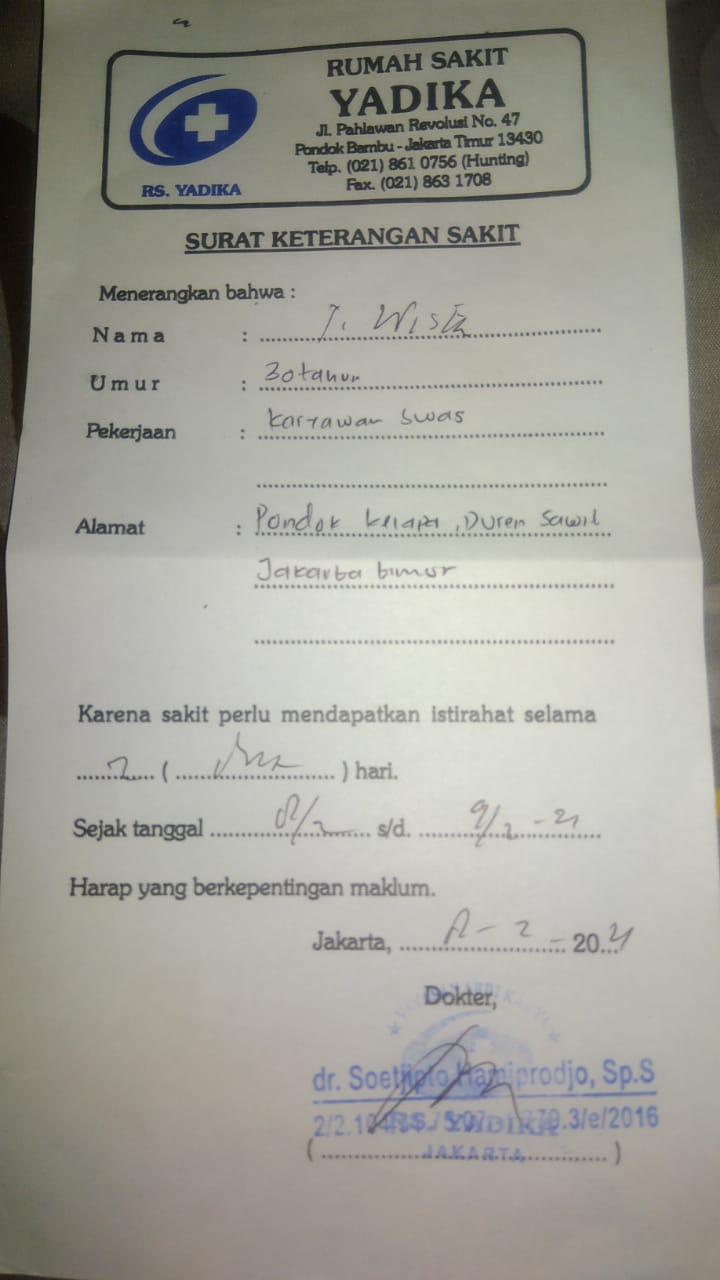 RUMAH SAKIT
YADIKA
Jl. Pahlawan Revolusi No. 47
Pondok Bambu - Jakarta Timur 13430
Telp. (021) 861 0756 (Hunting)
Fax. (021) 863 1708
RS. YADIKA
SURAT KETERANGAN SAKIT
Menerangkan bahwa :
Nama :
Umur : 30 tahun
Pekerjaan : Karyawan Swas
Alamat : Pondok Kelapa, Duren Sawit
Jakarta timur
Karena sakit perlu mendapatkan istirahat selama
2 ( dua ) hari.
Sejak tanggal 8/2 s/d. 9/2 - 21
Harap yang berkepentingan maklum.
Jakarta, 8 - 2 - 2021
Dokter,
dr. Soetjipto Hamiprodjo, Sp.S
RS. YADIKA
JAKARTA